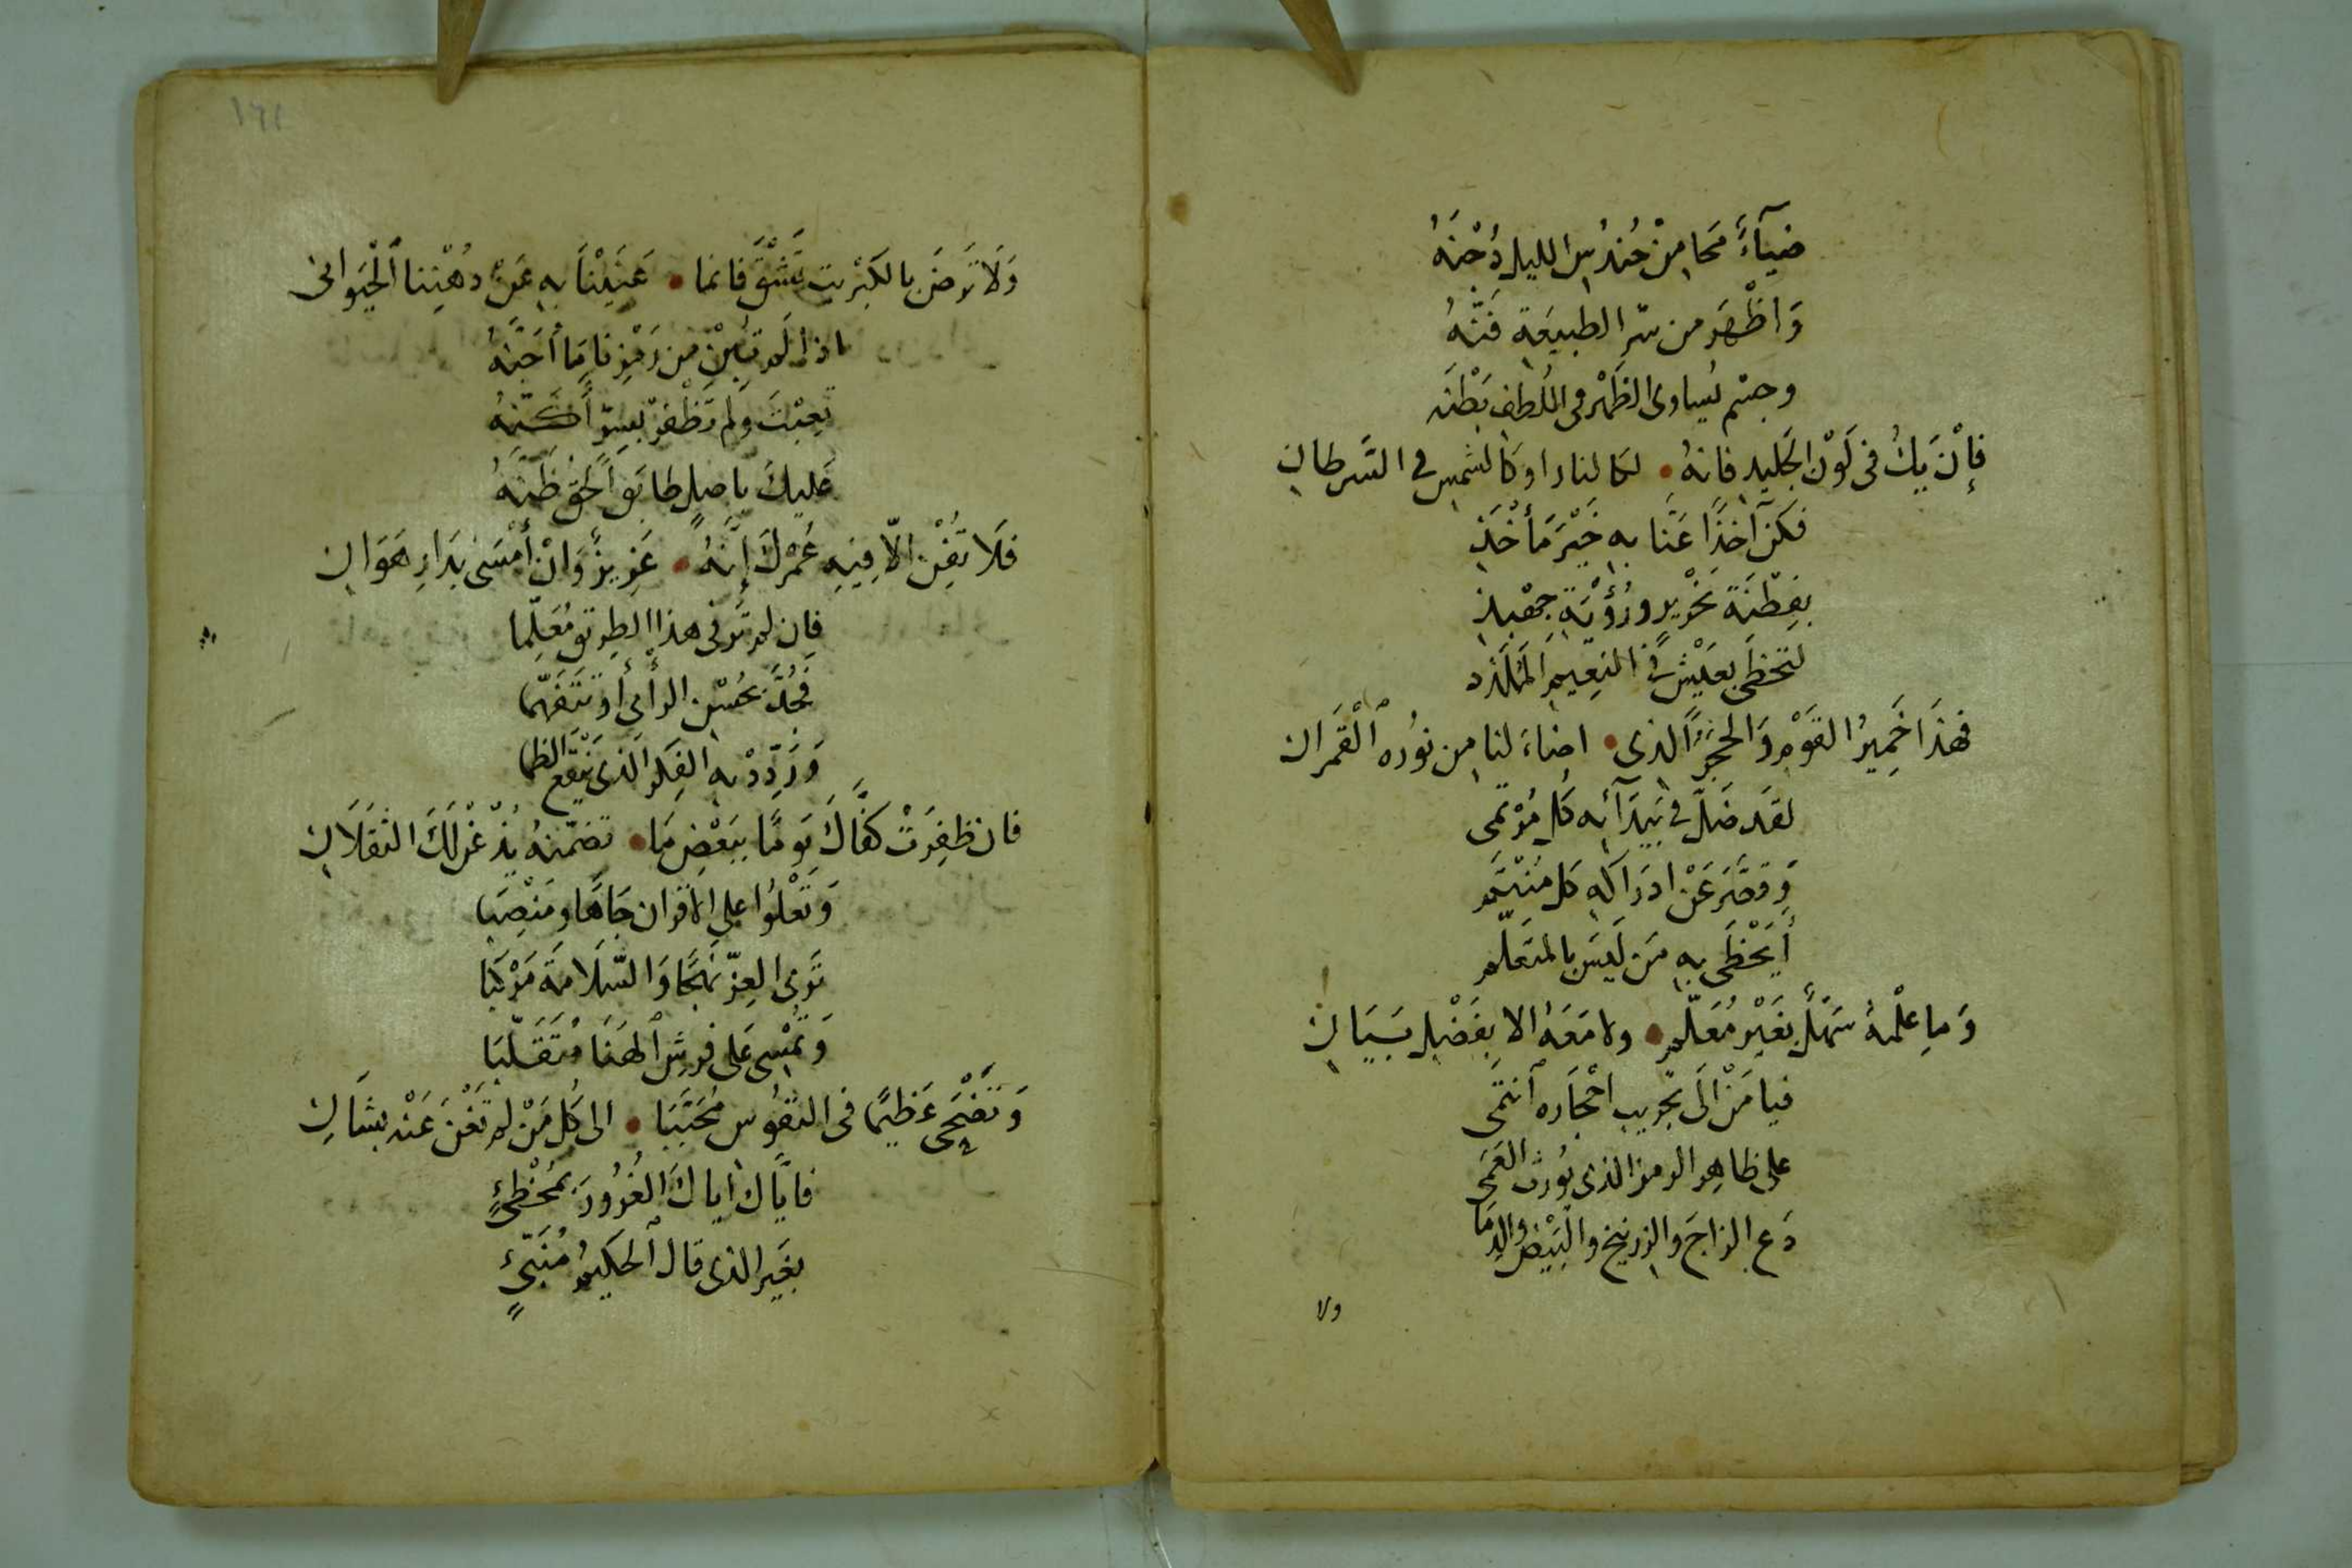 ضِيَآءً مَحَا مِنْ حُندُسِ الليلِ دُجْنَهُ
وَاظْهَرَ من سِرِّ الطبيعَةِ فَنَّهُ
وجسْم يُساوى الظَهْرَ فى اللُطفِ بَطْنَه
فإنْ يَكُ فى لَوْنِ الجَليدِ فانهُ • لكالنار او كالشمسِ فى السَّرطانِ
فكن آخذًا عَنَّا به خَيْرَ مَأخَذِ
بفِطْنَةِ نحْريرٍ ورُؤْيَةِ جِهْبِذِ
لتحظَى بعَيْشٍ فى النعيمِ المَلَذَّذ
فهٰذَا خَمِيرُ القَوْمِ وَالحجَرُ الذى • اضاءَ لنا مِن نورُه ٱلْقَمَرانِ
لقَد ضَلَّ فى بَيْدَآئه كل مُؤتمى
وَقَصَّرَ عَنْ ادرَاكِه كل مُنْتَمِ
أيَحْظَى بِه مَن لَيسَ بالمتعَلّم
وَمَا عِلْمهُ سَهْلٌ بغَيْرِ مُعَلّمٍ • ولا مَعَهُ الا بِفَضْلِ بَيَانِ
فيا مَنْ الَى تجريبِ احْجَارِه ٱنتَمَى
على ظاهِرِ الرمز الذى يُورثُ العَمَى
دَعِ الزاجَ والزرنيخَ والبَيْضَ والدِمَا
ولا
١٦٢
وَلَا تَرضَ بالكبْريتِ تَشْقَ فانما • عَنَيْنَا بِهِ عَنْ دُهْنِنا ٱلْحَيَوانى
اذا لم تَبِنْ من رَمْزِنا مَا أَجَنَّهُ
تعِبْتَ ولم تظْفَرْ بسِرٍّ أكَنَّهُ
عَليكَ باصلٍ طابَقَ الحَقُّ ظَنَّهُ
فَلَا تُفْنِ الّا فيهِ عُمْرَكَ إِنَّهُ • عَزِيزٌ وَانْ أَمْسَى بدَارِ هَوَانِ
فإن لم تَرَ فى هذا الطريق مُعَلِّما
فَجُدَّ بحُسْنِ الرأى أو تتَفَهّما
وَرَدِّدْ بهِ الفِكر الذى يَنْقَعُ الظما
فان ظفِرَتْ كفَّاكَ يَومًا ببَعْضِ مَا • تضمّنهُ يُذْعِنْ لكَ الثقَلَانِ
وَتَعْلُوا على الاقران جَاهًا ومَنْصِبَا
تَرى العِزّ نَهجًا وَالسَّلَامَةَ مَرْكبَا
وَتمْسِى عَلى فرشِ ٱلهَنَا مُتَقَلّبَا
وَتَضْحَى عَظيمًا فى النفُوس مُحَبَّبَا • الى كُل مَنْ لم تَغْنَ عَنْهُ بشَانِ
فايَّاك اياكَ الغُرُورَ بمُخْطِئٍ
بغَيرِ الذى قالَ ٱلحَكيمُ مُنَبّئٍ